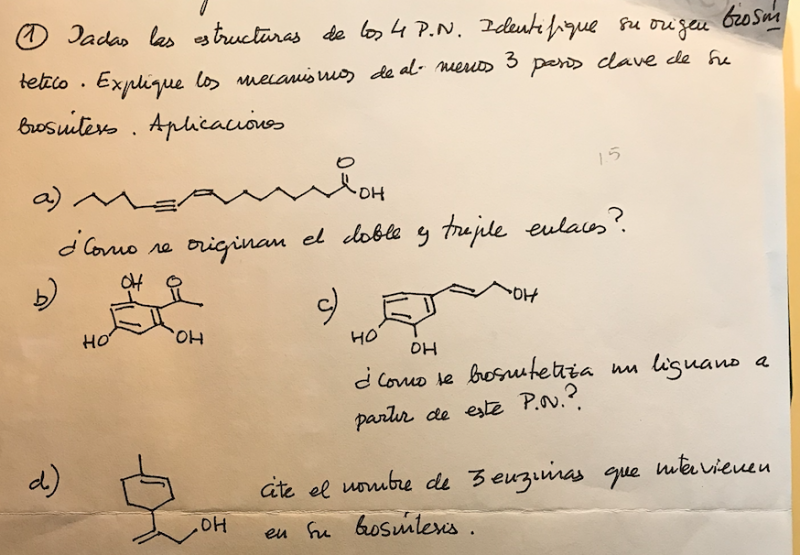 ① Dadas las estructuras de los 4 P.N. Identifique su origen biosin
tetico. Explique los mecanismos de al- menos 3 pasos clave de su
biosintesis. Aplicaciones
15
a)
O
OH
¿Como se originan el doble y triple enlaces?
b)
OH
O
HO
OH
c)
OH
HO
OH
¿Como se biosintetiza un lignano a
partir de este P.N.?
d)
OH
cite el nombre de 3 enzimas que intervienen
en su biosintesis.